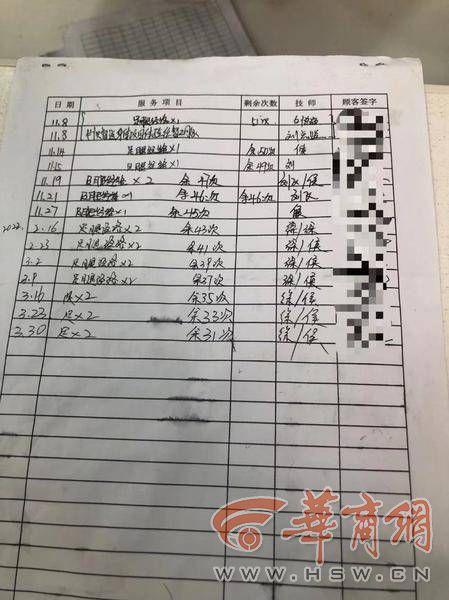 日期 服务项目 剩余次数 技师 顾客签字
11.8 足腿经络×1 51次
11.8
11.14 足腿经络×1 余50次 侯
11.15 足腿经络×1 余49次 刘
11.19 足腿经络×2 余47次 刘/侯
11.21 余46次 余46次
11.27 足腿经络×1 余45次 侯
2.16 足腿经络×2 余43次 徐/侯
2.23 足腿经络×2 余41次 徐/侯
3.2 足腿经络×2 余39次 徐/侯
3.9 足腿经络×2 余37次 徐/侯
3.16 足×2 余35次 徐/侯
3.23 足×2 余33次 徐/侯
3.30 足×2 余31次 徐/侯
華商網
WWW.HSW.CN